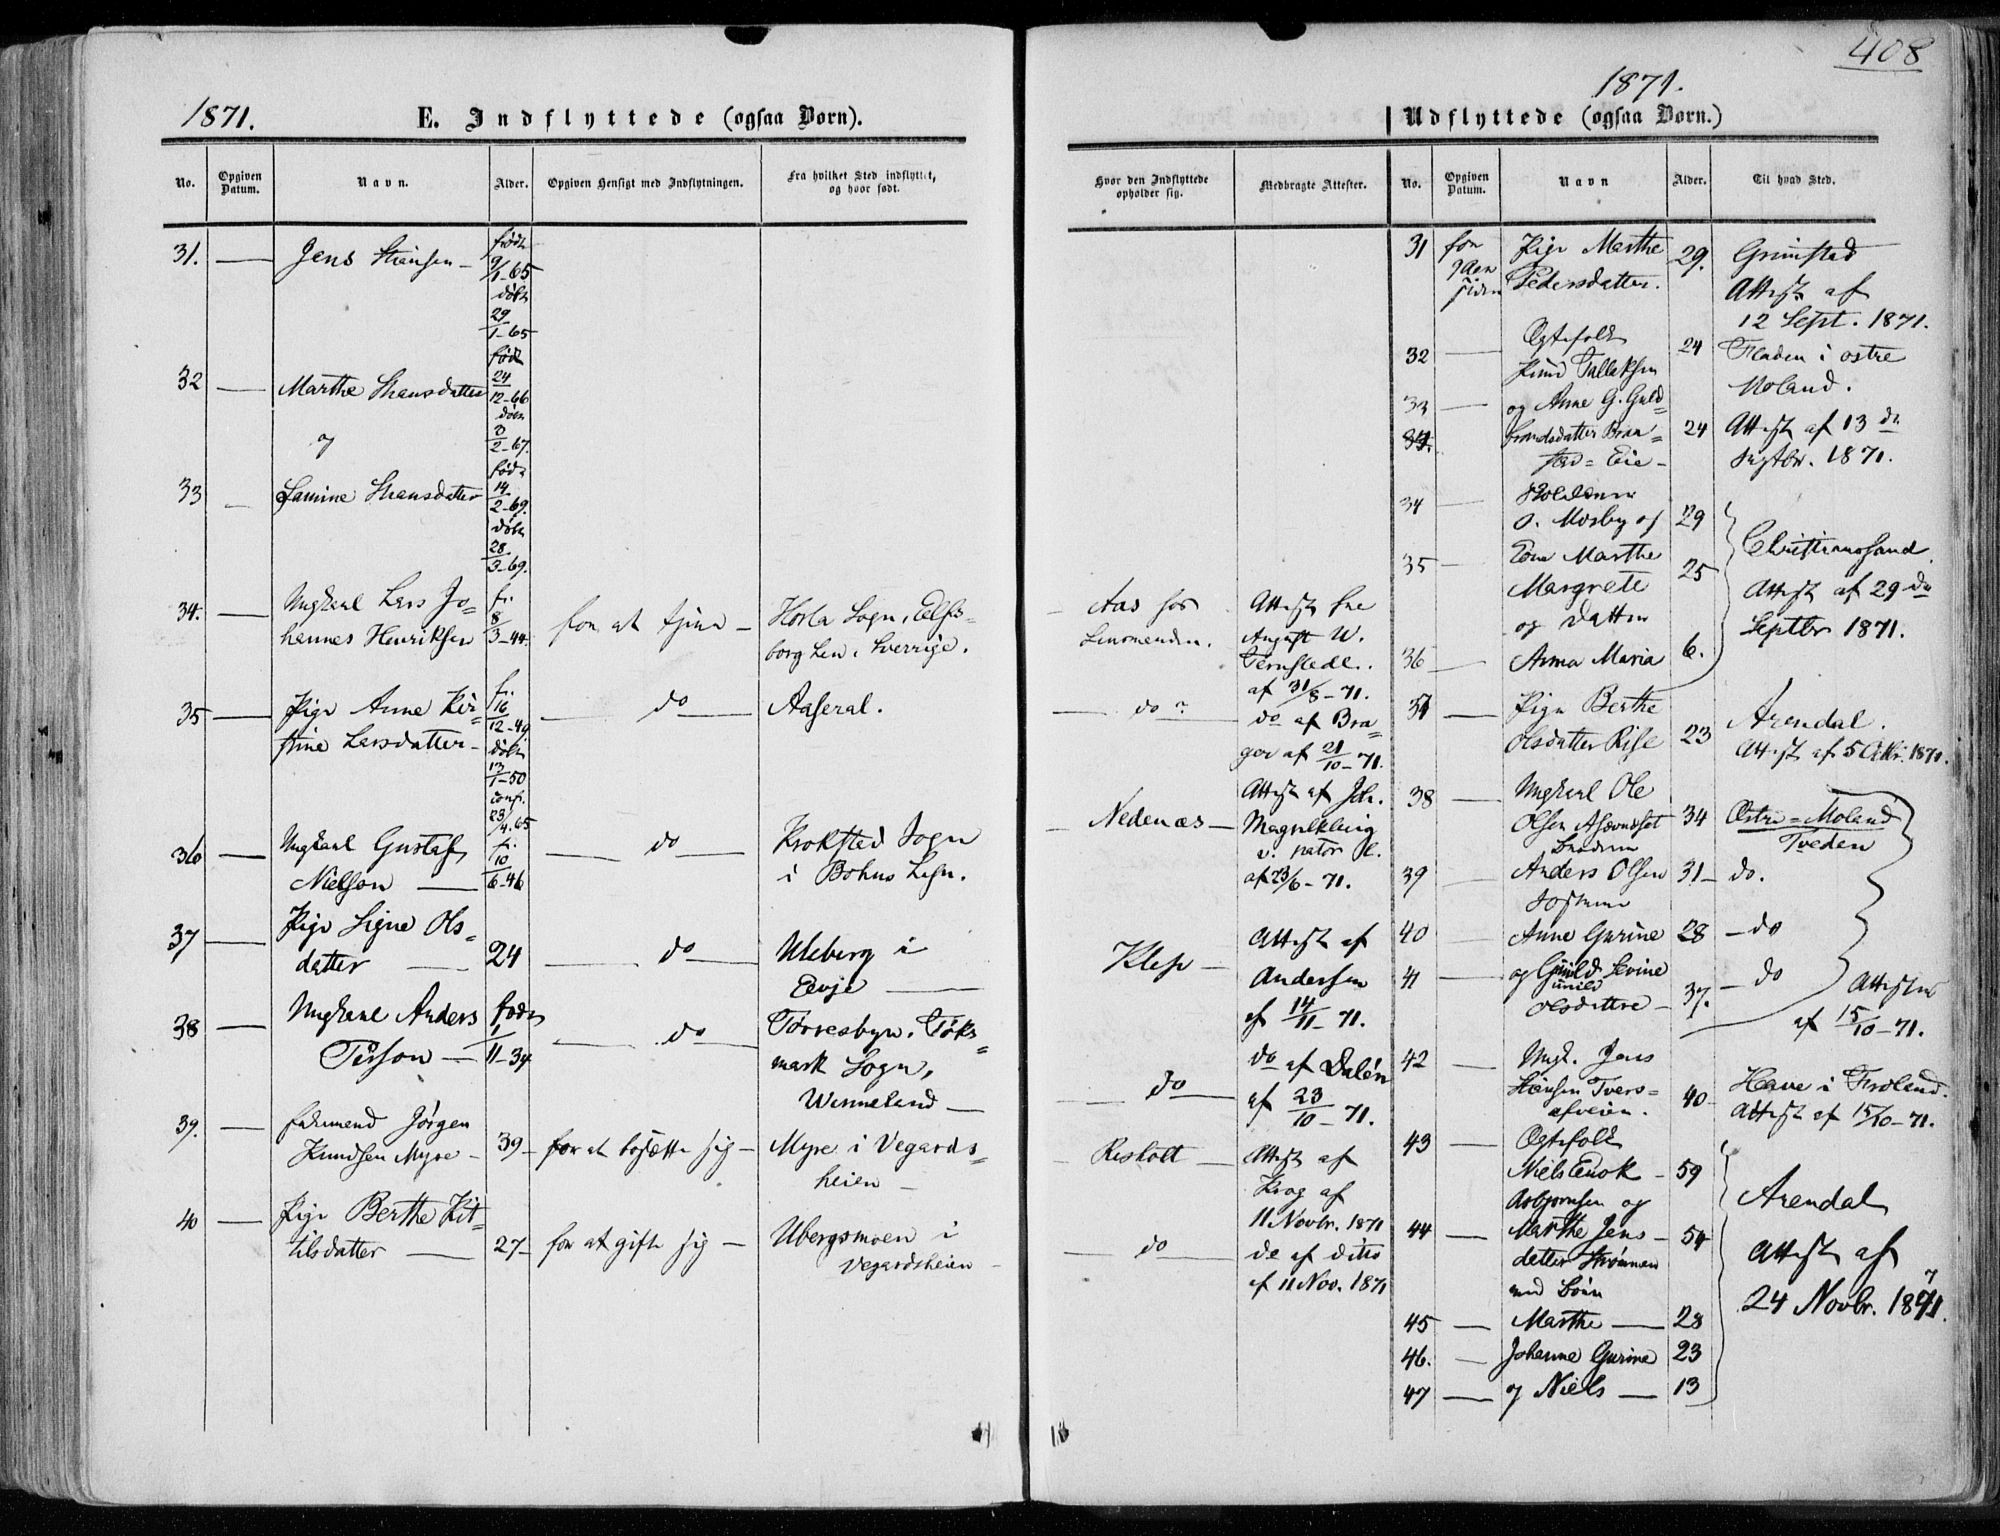 1871.
E. Indflyttede (ogsaa Børn).
No.
Opgiven Datum.
Navn.
Alder.
Opgiven Hensigt med Indflytningen.
Fra hvilket Sted indflyttet, og hvor født.
31. Jens Hansen – født 9/1-65 døbt 29/1-65
32 Marthe Hansdatter født 24/12-66 døbt 3/2-67.
og
33 Lamine Hansdatter født 14/2-69. døbt 28/3-69.
34. Ungkarl Lars Jo= f. 8/3-44. for at tjene – Horla Sogn, Elfs=
hennes Henriksen borg Len i Sverrige.
35 Pige Anne Kir= f. 16/12-49 do Aaseral.
stine Larsdatter – døbt 13/1-50 conf. 23/4-65
36 Ungkarl Gustaf f. 10/6-46 do Krokstad Sogn
Nielson i Bohus Lehn.
37 Pige Signe Ols= 24 do Uleberg i
datter Evje
38 Ungkarl Anders født 1/11-34 do Torresbyn, Töks=
Person mark Sogn,
Wermeland
39. Jørgen 39 – for at bosætte sig – Myre i Vegards=
Knudsen Myre – heien –
40 Pige Berthe Kit= 27 – for at gifte sig – Ubergsmoen i
tilsdatter Vegardsheien
408
1871.
Udflyttede (ogsaa Børn.)
Hvor den Indflyttede opholder sig.
Medbragte Attester.
No.
Opgiven Datum.
Navn
Alder.
Til hvad Sted.
Aas hos Attest fra
August W.
af 31/8-71.
do do af Bra=
ger af 21/10-71.
Nedenæs – Attest af Joh.
af 23/6-71.
Klep – Attest af
Andersen
af 14/11-71.
do do af Dalén
af 23/10-71.
Resholt – Attest af
Krog af
11 Novbr. 1871
do do af ditto
af 11 Nov. 1871
31 Pige Marthe 29. Grimstad
Pedersdatter. Attest af
12 Sept. 1871.
32 Ægtefolk 24 Fladen i østre
Knud Tallaksen Moland.
33 og Anne G. Guld= 24 Attest af 13 de
34. brandsdatter Bra= Septbr. 1871.
stad=Eie –
34 O. Mosby og 29 Christianssand
35 Kone Marthe 25 Attest af 29 de
Margrete Septbr 1871.
og Datter
36 Anna Maria 6.
37 Pige Berthe 23 Arendal.
Olsdatter Rise Attest af 5 Oktbr. 1871.
38 Ungkarl Ole 34 Østre=Moland
Olsen Tveden
39 Anders Olsen 31 – do.
40 Anne Gurine 28 – do
41 og Gunild Sevine 37. – do
Olsdattre – Attester
af 15/10-71.
42 Ungk. Jens 40 – Have i Froland.
Hansen Tvers= Attest af 15/10-71.
43 Ægtefolk
Niels Enok – 59 Arendal
Asbjørnsen og
44 Marthe Jens – 54 Attest af
datter Strømmen 24 Novbr. 1871.
med Børn
45 Marthe 28
46. Johanne Gurine 23
47 og Niels 13